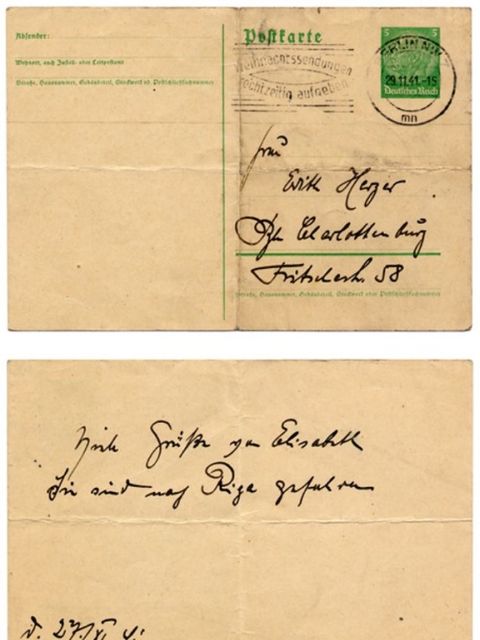 Absender:
Wohnort, auch Zustell- oder Leitpostamt
Straße, Hausnummer, Gebäudeteil, Stockwerk od. Postschließfachnummer
Postkarte
Weihnachtssendungen
rechtzeitig aufgeben
5 5
BERLIN NW 7
29.11.41.-15
Deutsches Reich
mn
Frau
Edith Herzer
Charlottenburg
Fritschestr. 58
Straße, Hausnummer, Gebäudeteil, Stockwerk oder Postschließfachnummer
Viele Grüße von Elisabeth
Sie sind nach Riga gefahren
d. 27./XI. 41